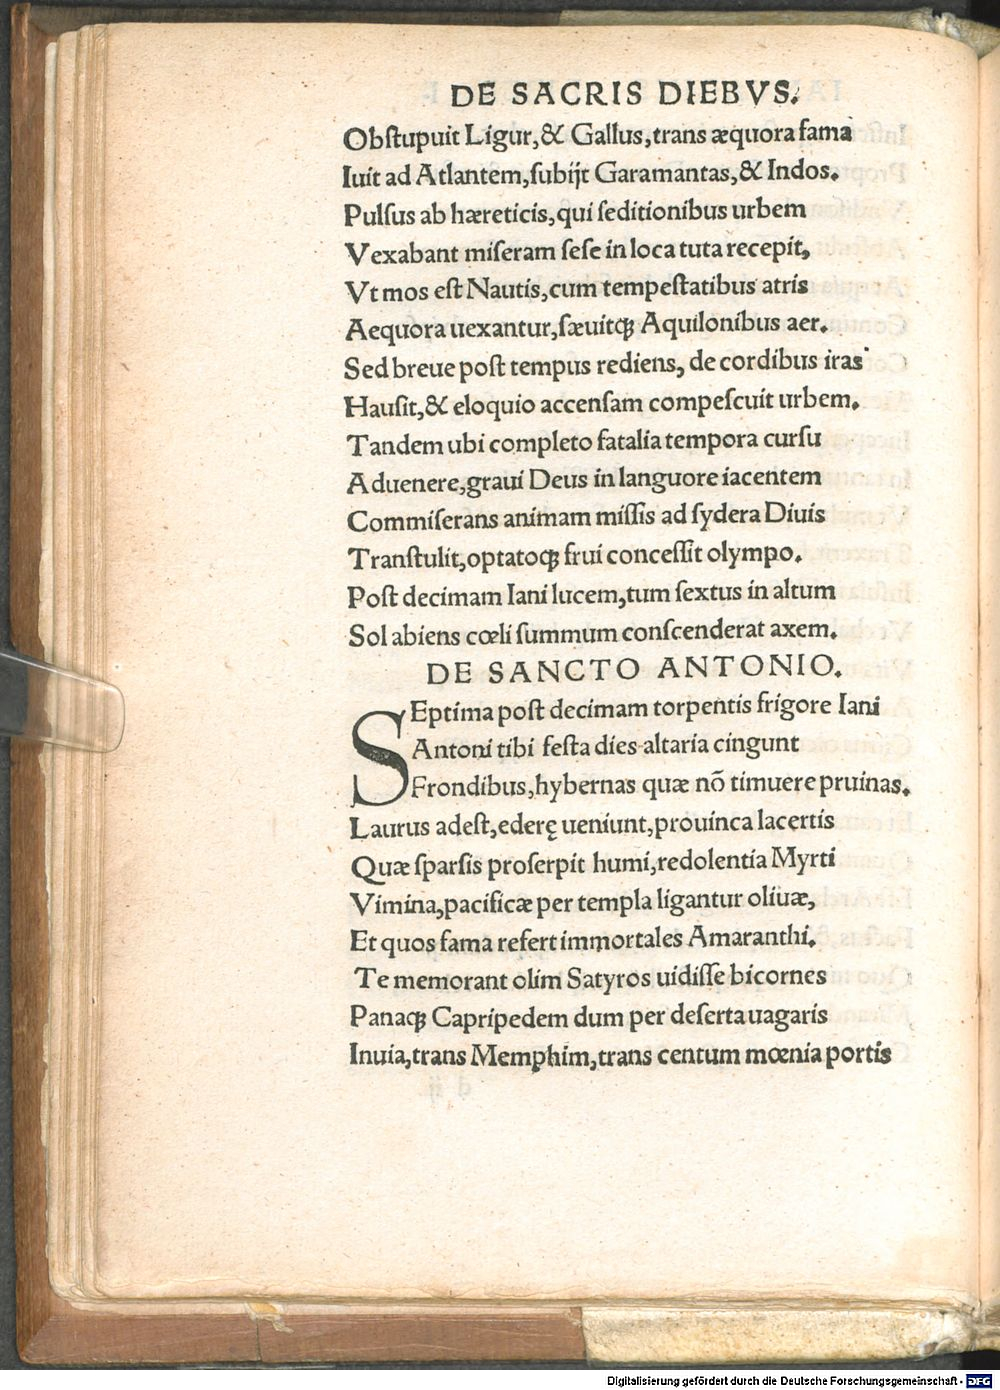 DE SACRIS DIEBVS.
Obſtupuit Ligur,& Gallus,trans æquora fama
Iuit ad Atlantem,ſubijt Garamantas,& Indos.
Pulſus ab hæreticis,qui ſeditionibus urbem
Vexabant miſeram ſeſe in loca tuta recepit,
Vt mos eſt Nautis,cum tempeſtatibus atris
Aequora uexantur,ſæuitqꝫ Aquilonibus aer.
Sed breue poſt tempus rediens, de cordibus iras
Hauſit,& eloquio accenſam compeſcuit urbem.
Tandem ubi completo fatalia tempora curſu
Aduenere,graui Deus in languore iacentem
Commiſerans animam miſſis ad ſydera Diuis
Tranſtulit,optatoqꝫ frui conceſſit olympo.
Poſt decimam Iani lucem,tum ſextus in altum
Sol abiens cœli ſummum conſcenderat axem.
DE SANCTO ANTONIO.
SEptima poſt decimam torpentis frigore Iani
Antoni tibi feſta dies altaria cingunt
Frondibus,hybernas quæ nõ timuere pruinas.
Laurus adeſt,ederę ueniunt,prouinca lacertis
Quæ ſparſis proſerpit humi,redolentia Myrti
Vimina,pacificæ per templa ligantur oliuæ,
Et quos fama refert immortales Amaranthi.
Te memorant olim Satyros uidiſſe bicornes
Panaqꝫ Capripedem dum per deſerta uagaris
Inuia,trans Memphim,trans centum mœnia portis
Digitalisierung gefördert durch die Deutsche Forschungsgemeinschaft - DFG